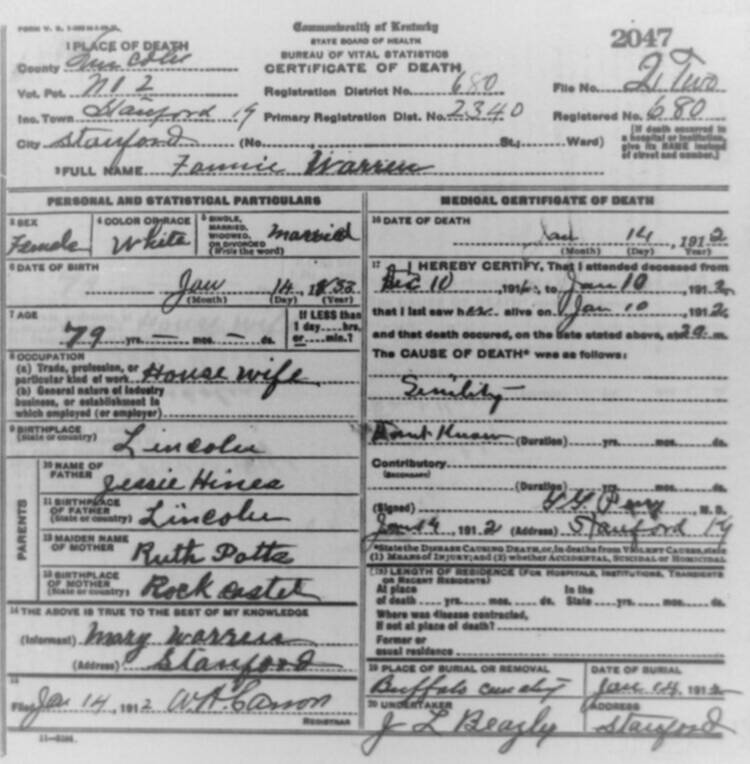 Commonwealth of Kentucky
STATE BOARD OF HEALTH
BUREAU OF VITAL STATISTICS
CERTIFICATE OF DEATH
2047
1 PLACE OF DEATH
County Lincoln
Vot. Pct. No 2
Inc. Town Stanford Ky
City Stanford (No. St.; Ward)
Registration District No. 680
Primary Registration Dist. No. 2340
File No. 2 Two
Registered No. 680
[If death occurred in a hospital or institution, give its NAME instead of street and number.]
2 FULL NAME Fannie Warren
PERSONAL AND STATISTICAL PARTICULARS
3 SEX Female
4 COLOR OR RACE White
5 SINGLE, MARRIED, WIDOWED, OR DIVORCED (Write the word) Married
6 DATE OF BIRTH
Jan 14, (Month) (Day) (Year)
7 AGE
79 yrs. — mos. — ds.
If LESS than 1 day... hrs. or... min.?
8 OCCUPATION
(a) Trade, profession, or particular kind of work House wife
(b) General nature of industry business, or establishment in which employed (or employer)
9 BIRTHPLACE (State or country) Lincoln
PARENTS
10 NAME OF FATHER Jessie Hines
11 BIRTHPLACE OF FATHER (State or country) Lincoln
12 MAIDEN NAME OF MOTHER Ruth Potts
13 BIRTHPLACE OF MOTHER (State or country) Rock castel
14 THE ABOVE IS TRUE TO THE BEST OF MY KNOWLEDGE
(Informant) Mary Warren
(Address) Stanford
15
Filed Jan 14, 1912 W.H. Carson
REGISTRAR
MEDICAL CERTIFICATE OF DEATH
16 DATE OF DEATH
Jan 14, 1912
(Month) (Day) (Year)
17 I HEREBY CERTIFY, That I attended deceased from
Dec 10, 191 , to Jan 10, 1912,
that I last saw her alive on Jan 10, 1912,
and that death occured, on the date stated above, at m.
The CAUSE OF DEATH* was as follows:
Senility
Dont Know (Duration) yrs. mos. ds.
Contributory
(SECONDARY)
(Duration) yrs. mos. ds.
(Signed) M. D.
Jan 14, 1912 (Address) Stanford Ky
*State the DISEASE CAUSING DEATH, or, in deaths from VIOLENT CAUSES, state
(1) MEANS OF INJURY; and (2) whether ACCIDENTAL, SUICIDAL OR HOMICIDAL
(18) LENGTH OF RESIDENCE (FOR HOSPITALS, INSTITUTIONS, TRANSIENTS OR RECENT RESIDENTS)
At place of death yrs. mos. ds. In the State yrs. mos. ds.
Where was disease contracted, If not at place of death?
Former or usual residence
19 PLACE OF BURIAL OR REMOVAL
Buffalo
DATE OF BURIAL
Jan 14, 1912
20 UNDERTAKER
J L Beazly
ADDRESS
Stanford